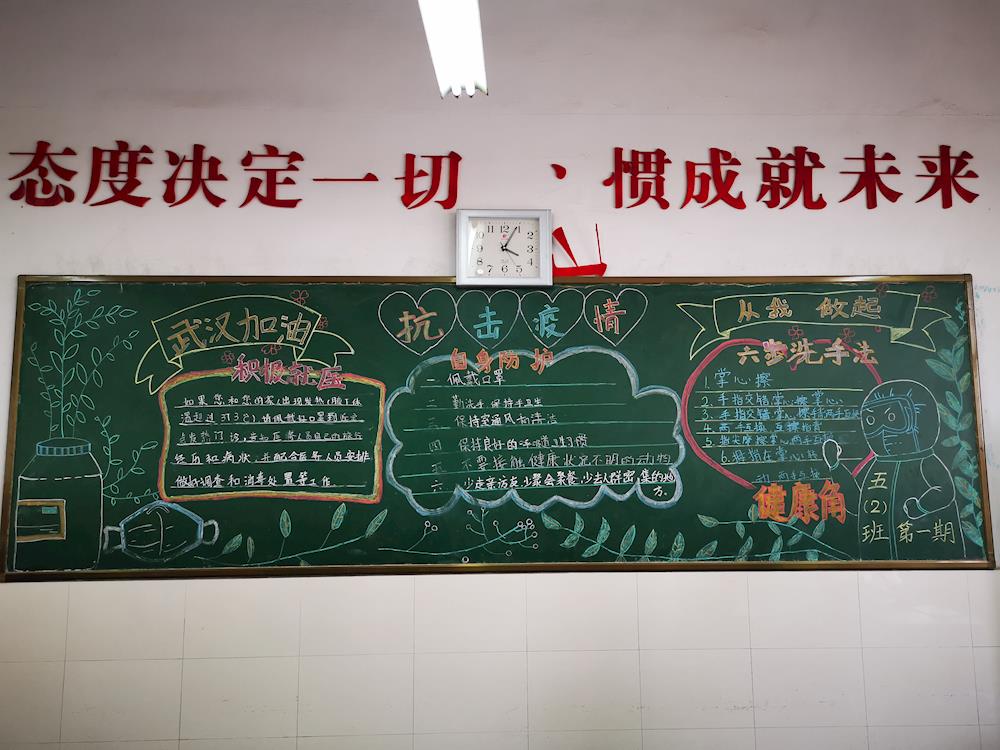 态度决定一切、惯成就未来
11 12 1
10 2
9 3
8 4
7 6 5
武汉加油
积极就医
如果您和您的家人出现发热(腋下体
温超过37.3℃)请佩戴好口罩到近
发热门诊,
经历和病状,并配合医务人员安排
做好调查和消毒处置等工作
抗击疫情
自身防护
一 佩戴口罩
二 勤洗手,保持手卫生
三 保持室通风和清洁
四 保持良好的呼吸道习惯
五 不要接触健康状况不明的动物
六 少走亲访友,少聚会聚餐,少去人群密集的地
方.
从我做起
六步洗手法
1. 掌心擦
2. 手指交错掌心擦掌心
3. 手指交错掌心擦手背两手互换
4. 两手互握互擦指背
5. 指尖摩擦掌心两手互换
6. 拇指在掌心转
动 两手互换
健康角
五
(2)
班 第一期